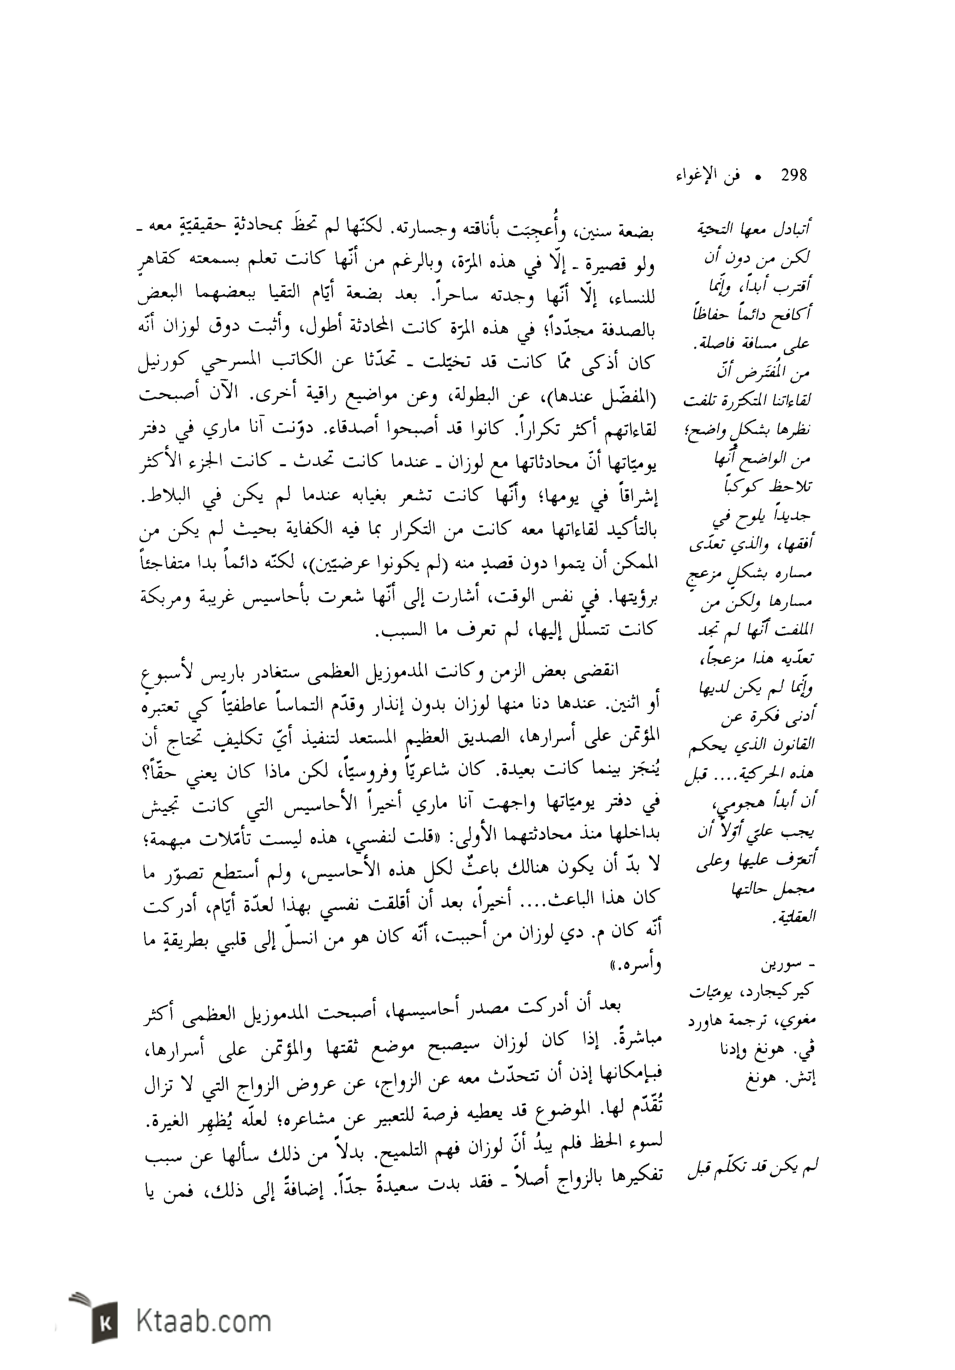 298 • فن الإغواء
بضعة سنين، وأُعجِبَت بأناقته وجسارته. لكنّها لم تحظَ بمحادثةٍ حقيقيّةٍ معه ـ
ولو قصيرة ـ إلّا في هذه المرّة، وبالرغم من أنّها كانت تعلم بسمعته كقاهرٍ
للنساء، إلّا أنّها وجدته ساحراً. بعد بضعة أيّام التقيا ببعضهما البعض
بالصدفة مجدّداً؛ في هذه المرّة كانت المحادثة أطول، وأثبت دوق لوزان أنّه
كان أذكى ممّا كانت قد تخيّلت ـ تحدّثا عن الكاتب المسرحي كورنيل
(المفضّل عندها)، عن البطولة، وعن مواضيع راقية أخرى. الآن أصبحت
لقاءاتهم أكثر تكراراً. كانوا قد أصبحوا أصدقاء. دوّنت آنا ماري في دفتر
يوميّاتها أنّ محادثاتها مع لوزان ـ عندما كانت تحدث ـ كانت الجزء الأكثر
إشراقاً في يومها؛ وأنّها كانت تشعر بغيابه عندما لم يكن في البلاط.
بالتأكيد لقاءاتها معه كانت من التكرار بما فيه الكفاية بحيث لم يكن من
الممكن أن يتموا دون قصدٍ منه (لم يكونوا عرضيّين)، لكنّه دائماً بدا متفاجئاً
برؤيتها. في نفس الوقت، أشارت إلى أنّها شعرت بأحاسيس غريبة ومربكة
كانت تتسلّل إليها، لم تعرف ما السبب.
انقضى بعض الزمن وكانت المدموزيل العظمى ستغادر باريس لأسبوعٍ
أو اثنين. عندها دنا منها لوزان بدون إنذار وقدّم التماساً عاطفيّاً كي تعتبره
المؤتمن على أسرارها، الصديق العظيم المستعد لتنفيذ أيّ تكليفٍ تحتاج أن
يُنجَز بينما كانت بعيدة. كان شاعريّاً وفروسيّاً، لكن ماذا كان يعني حقّاً؟
في دفتر يوميّاتها واجهت آنا ماري أخيراً الأحاسيس التي كانت تجيش
بداخلها منذ محادثتهما الأولى: «قلت لنفسي، هذه ليست تأمّلات مبهمة؛
لا بدّ أن يكون هنالك باعثٌ لكل هذه الأحاسيس، ولم أستطع تصوّر ما
كان هذا الباعث.... أخيراً، بعد أن أقلقت نفسي بهذا لعدّة أيّام، أدركت
أنّه كان م. دي لوزان من أحببت، أنّه كان هو من انسلّ إلى قلبي بطريقةٍ ما
وأسره.»
بعد أن أدركت مصدر أحاسيسها، أصبحت المدموزيل العظمى أكثر
مباشرةً. إذا كان لوزان سيصبح موضع ثقتها والمؤتمن على أسرارها،
فبإمكانها إذن أن تتحدّث معه عن الزواج، عن عروض الزواج التي لا تزال
تُقَدّم لها. الموضوع قد يعطيه فرصة للتعبير عن مشاعره؛ لعلّه يُظهِر الغيرة.
لسوء الحظ فلم يبدُ أنّ لوزان فهم التلميح. بدلاً من ذلك سألها عن سبب
تفكيرها بالزواج أصلاً ـ فقد بدت سعيدةً جدّاً. إضافةً إلى ذلك، فمن يا
أتبادل معها التحيّة
لكن من دون أن
أقترب أبداً، وإنّما
أكافح دائماً حفاظاً
على مسافة فاصلة.
من المُفتَرض أنّ
لقاءاتنا المتكرّرة تلفت
نظرها بشكلٍ واضح؛
من الواضح أنّها
تلاحظ كوكباً
جديداً يلوح في
أفقها، والذي تعدّى
مساره بشكلٍ مزعجٍ
مسارها ولكن من
الملفت أنّها لم تجد
تعدّيه هذا مزعجاً،
وإنّما لم يكن لديها
أدنى فكرة عن
القانون الذي يحكم
هذه الحركية.... قبل
أن أبدأ هجومي،
يجب عليّ أوّلاً أن
أتعرّف عليها وعلى
مجمل حالتها
العقليّة.
ـ سورين
كيركيجارد، يوميّات
مغوي، ترجمة هاورد
ڤي. هونغ وإدنا
إتش. هونغ
لم يكن قد تكلّم قبل
Ktaab.com